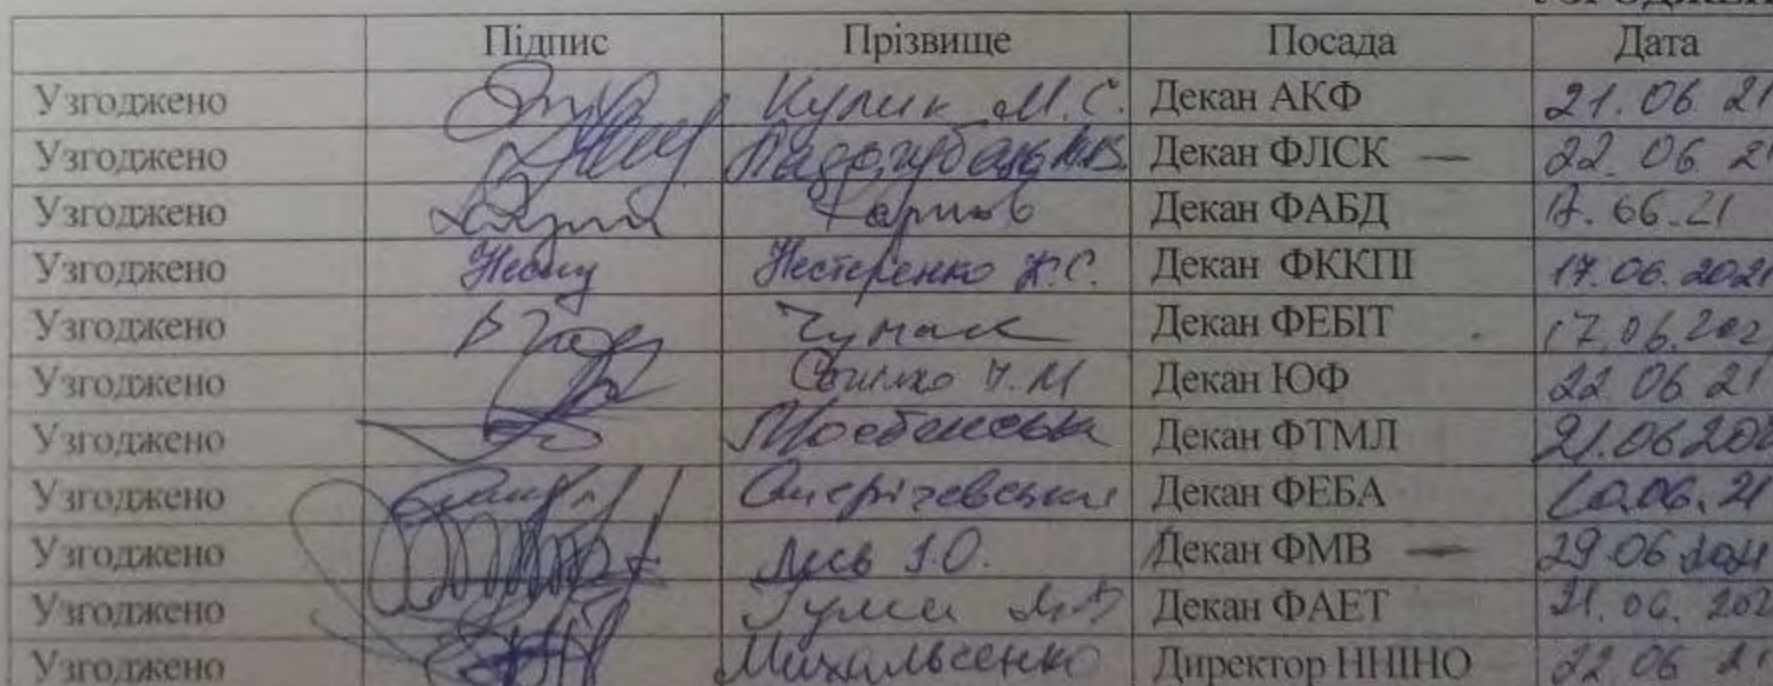 Підпис Прізвище Посада Дата
Узгоджено Кулик М.С. Декан АКФ 21.06 21
Узгоджено Декан ФЛСК — 22.06 21
Узгоджено Карпов Декан ФАБД 17.06.21
Узгоджено Нестеренко К.С. Декан ФККПІ 17.06.2021
Узгоджено Чумак Декан ФЕБІТ 17.06.202
Узгоджено Декан ЮФ 22 06 21
Узгоджено Декан ФТМЛ 21.06.202
Узгоджено Смерічевський Декан ФЕБА 06.21
Узгоджено Декан ФМВ — 29.06 2021
Узгоджено Декан ФАЕТ 21.06.202
Узгоджено Михальченко Директор ННІНО 22 06 21